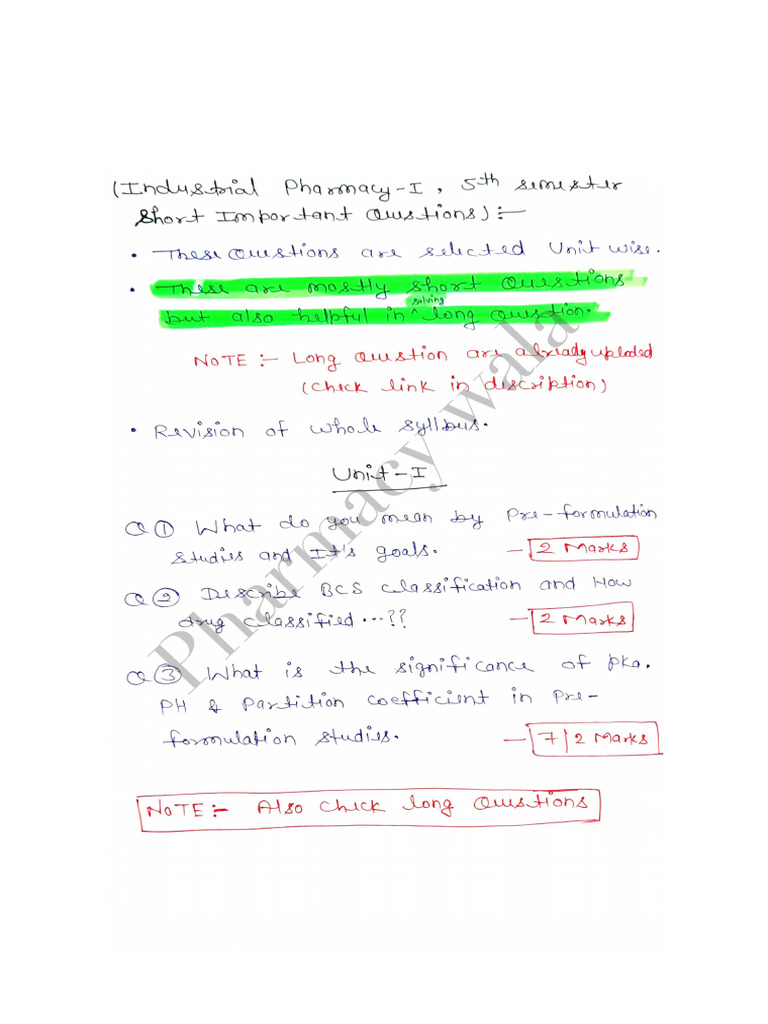 (Industrial Pharmacy-I, 5th semester
Short Important Questions):-
• These Questions are selected Unit wise.
• These are mostly short Questions
but also helpful in ^solving long Question.
NOTE :- Long Question are already uploded
(Check link in discription)
• Revision of whole syllbus.
Unit-I
Q① What do you mean by Pre-formulation
studies and It's goals. - 2 Marks
Q② Describe BCS classification and How
drug classified...?? - 2 Marks
Q③ What is the significance of pka,
PH & Partition coefficient in Pre-
formulation studies. - 7/2 Marks
NOTE:- Also check long Questions
Pharmacy wala